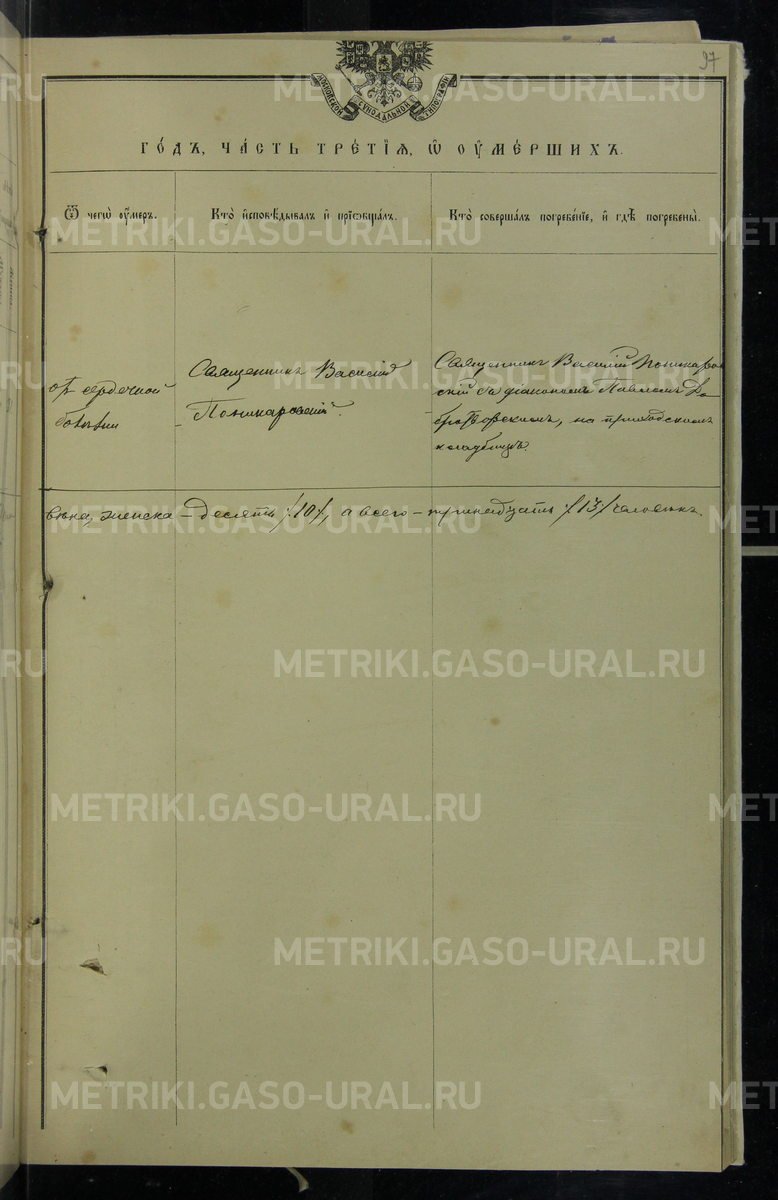 97
МОСКОВСКОЙ СѴНОДАЛЬНОЙ ТИПОГРАФІИ
ГО́ДЪ, ЧА́СТЬ ТРЕ́ТІѦ, Ѡ҆ ОУ҆МЕ́РШИХЪ.
Ѿ чегѡ̀ оу҆́меръ.
Кто̀ и҆сповѣ́дывалъ и҆ прїѡбща́лъ.
Кто̀ соверша́лъ погребе́нїе, и҆ гдѣ̀ погребены̀.
отъ сердечной
болѣзни
Священникъ Василій
Поникаровскій.
Священникъ Василій Поникаров
скій съ діакономъ Павломъ До
бротворскимъ, на приходскомъ
кладбищѣ.
вѣка, женска – десять /10/, а всего – тринадцать /13/ человѣкъ.
METRIKI.GASO-URAL.RU